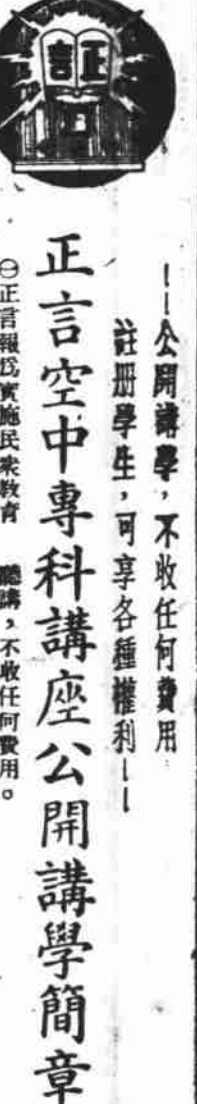 正言
——公開講學，不收任何費用
註册學生，可享各種權利——
正言空中專科講座公開講學簡章
㊀正言報爲實施民衆教育　聽講，不收任何費用。